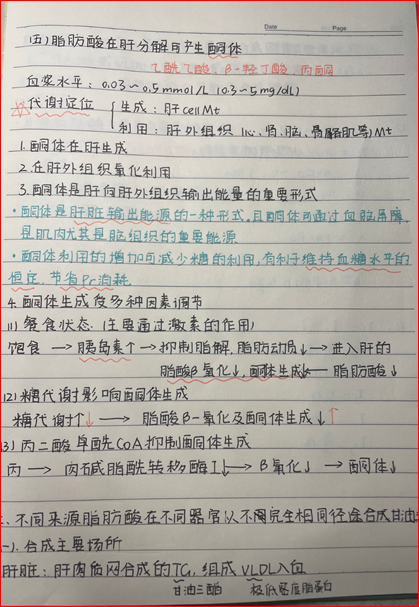 Date Page
(五)脂肪酸在肝分解可产生酮体
乙酰乙酸、β-羟丁酸、丙酮
血浆水平：0.03~0.5mmol/L (0.3~5mg/dl)
代谢定位 生成：肝cell Mt
利用：肝外组织(心、肾、脑、骨骼肌等)Mt
1.酮体在肝生成
2.在肝外组织氧化利用
3.酮体是肝向肝外组织输出能量的重要形式
·酮体是肝脏输出能源的一种形式,且酮体可通过血脑屏障,
是肌肉尤其是脑组织的重要能源
·酮体利用的增加可减少糖的利用,有利于维持血糖水平的
恒定,节省Pr消耗
4.酮体生成受多种因素调节
(1)餐食状态.(主要通过激素的作用)
饱食→胰岛素↑→抑制脂解,脂肪动员↓→进入肝的
脂酸β氧化↓,酮体生成↓← 脂肪酸↓
(2)糖代谢影响酮体生成
糖代谢↑↓→脂酸β-氧化及酮体生成↓↑
(3)丙二酸单酰CoA抑制酮体生成
丙→肉碱脂酰转移酶I↓→β氧化↓→酮体↓
二、不同来源脂肪酸在不同器官以不完全相同径途合成甘油
(一).合成主要场所
肝脏：肝内质网合成的TG,组成VLDL入血
甘油三酯 极低密度脂蛋白